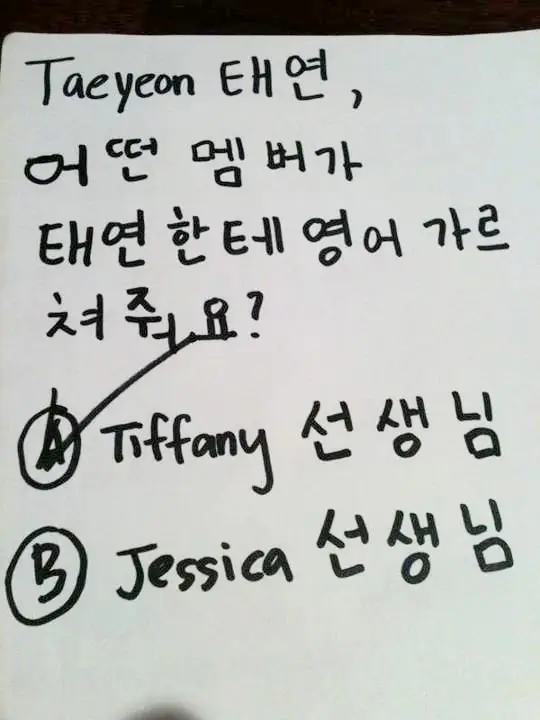 Taeyeon 태연,
어떤 멤버가
태연한테 영어 가르
쳐 줘요?
A Tiffany 선생님
B Jessica 선생님